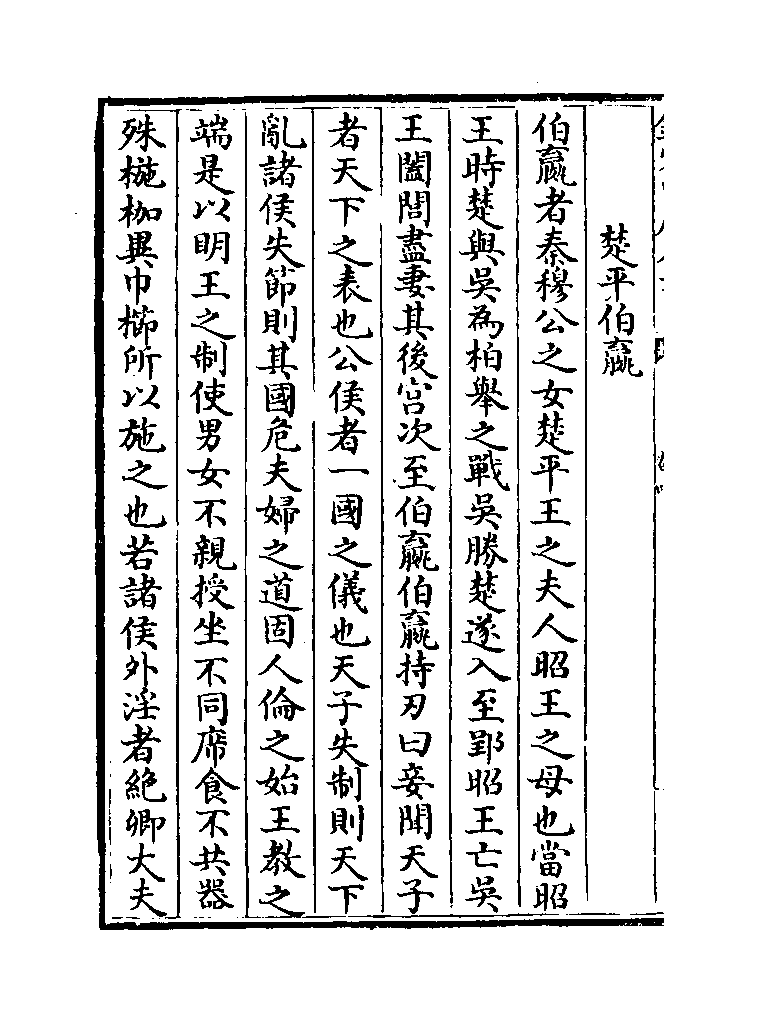 楚平伯嬴
伯嬴者秦穆公之女楚平王之夫人昭王之母也當昭
王時楚與吳為柏舉之戰吳勝楚遂入至郢昭王亡吳
王闔閭盡妻其後宮次至伯嬴伯嬴持刃曰妾聞天子
者天下之表也公侯者一國之儀也天子失制則天下
亂諸侯失節則其國危夫婦之道固人倫之始王教之
端是以明王之制使男女不親授坐不同席食不共器
殊椸枷異巾櫛所以施之也若諸侯外淫者絶卿大夫